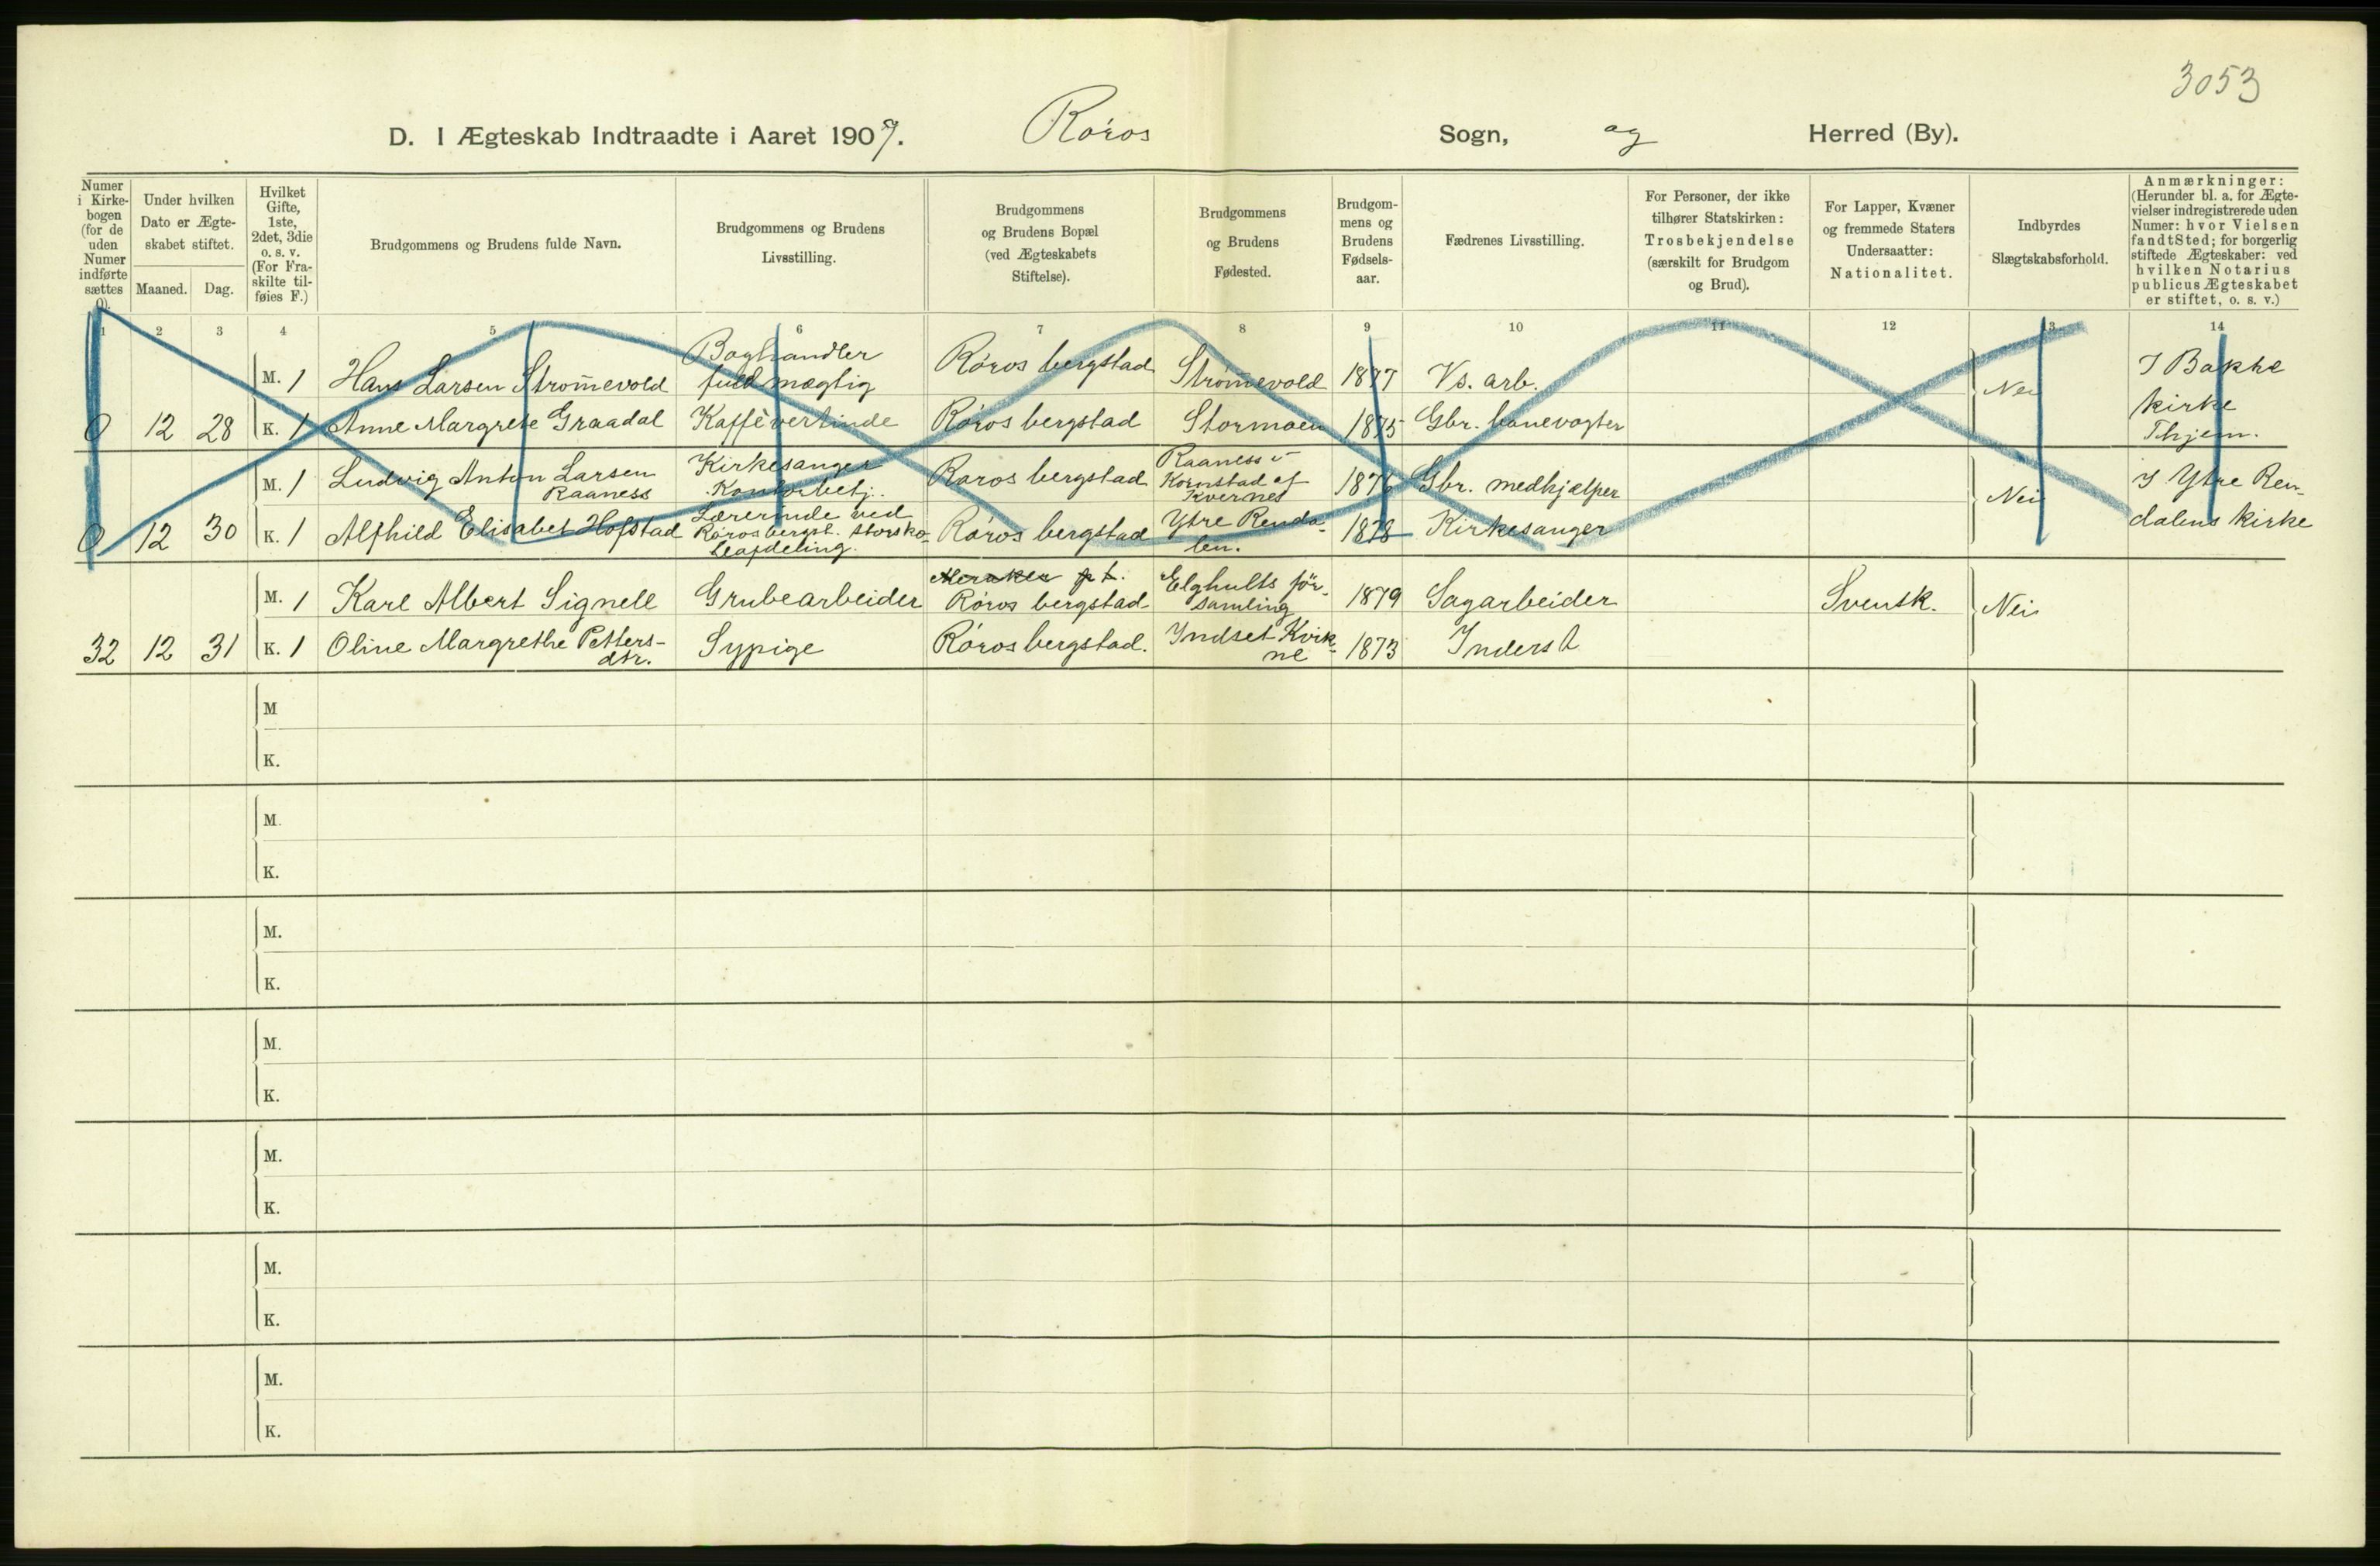 3053
D. I Ægteskab Indtraadte i Aaret 1907. Røros Sogn, og Herred (By).
Numer i Kirkebogen (for de uden Numer indførte sættes 0).
Under hvilken Dato er Ægteskabet stiftet.
Maaned. Dag.
Hvilket Gifte, 1ste, 2det, 3die o. s. v. (For Fraskilte tilføies F.)
Brudgommens og Brudens fulde Navn.
Brudgommens og Brudens Livsstilling.
Brudgommens og Brudens Bopæl (ved Ægteskabets Stiftelse).
Brudgommens og Brudens Fødested.
Brudgommens og Brudens Fødselsaar.
Fædrenes Livsstilling.
For Personer, der ikke tilhører Statskirken: Trosbekjendelse (særskilt for Brudgom og Brud).
For Lapper, Kvæner og fremmede Staters Undersaatter: Nationalitet.
Indbyrdes Slægtskabsforhold.
Anmærkninger: (Herunder bl. a. for Ægtevielser indregistrerede uden Numer: hvor Vielsen fandt Sted; for borgerlig stiftede Ægteskaber: ved hvilken Notarius publicus Ægteskabet er stiftet, o. s. v.)
1 2 3 4 5 6 7 8 9 10 11 12 13 14
M. 1 Hans Larsen Strømevold Boghandler fuldmægtig Røros bergstad Strømevold 1877 Vs. arb. Nei I Bakke kirke Thjem.
0 12 28 K. 1 Anne Margrete Graadal Kaffèvertinde Røros bergstad Stormoen 1875 Gbr. banevogter
M. 1 Ludvig Anton Larsen Raaness Kirkesanger Kontorbetj. Røros bergstad Raaness Kornstad af Kvernes 1876 Gbr. medhjælper Nei I Ytre Rendalens kirke
0 12 30 K. 1 Alfhild Elisabet Hofstad Lærerinde ved Røros bergst. storskoleafdeling. Røros bergstad Ytre Rendalen. 1878 Kirkesanger
M. 1 Karl Albert Signell Grubearbeider Meraker pt. Røros bergstad Elghults församling 1879 Sagarbeider Svensk. Nei
32 12 31 K. 1 Oline Margrethe Pettersdtr. Sypige Røros bergstad. Indset Kvikne 1873 Inderst
M
K.
M.
K.
M.
K.
M.
K.
M.
K.
M.
K.
M.
K.